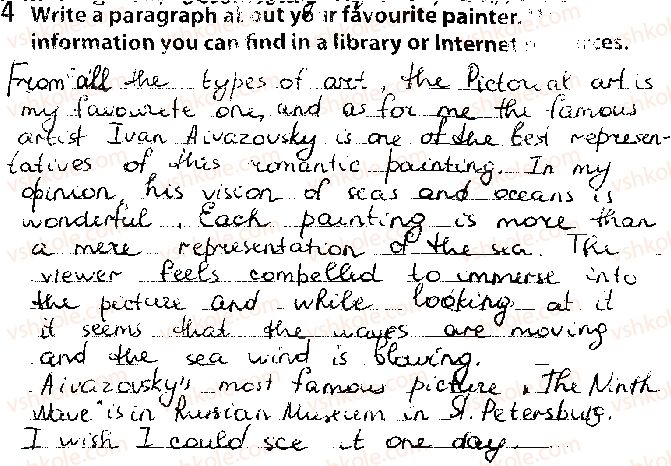 4 Write a paragraph about your favourite painter.
information you can find in a library or Internet
From all the types of art, the Pictorial art is
my favourite one, and as for me the famous
artist Ivan Aivazovsky is one of the best represen-
tatives of this romantic painting. In my
opinion, his vision of seas and oceans is
wonderful. Each painting is more than
a mere representation of the sea. The
viewer feels compelled to immerse into
the picture and while looking at it
it seems that the waves are moving
and the sea wind is blowing.
Aivazovsky's most famous picture "The Ninth
Wave" is in Russian Museum in St. Petersburg.
I wish I could see it one day.